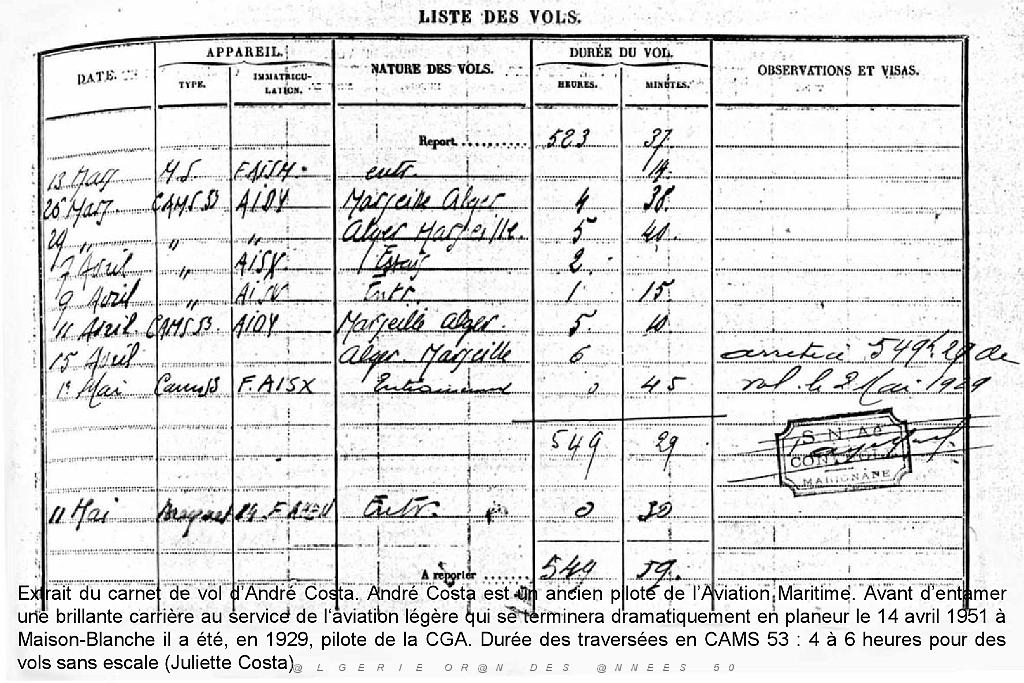 LISTE DES VOLS.
DATE. APPAREIL. NATURE DES VOLS. DURÉE DU VOL. OBSERVATIONS ET VISAS.
TYPE. IMMATRICU-LATION. HEURES. MINUTES.
Report.......... 523 37.
13 Mars M.S. F.AISM. entr. 19.
26 Mars. CAMS 53 AIDY Marseille Alger 4 38.
29 " " " Alger Marseille. 5 40.
7 Avril " AISX. Essais 2.
9 Avril " Entr. 1 15
11 Avril CAMS 53. AIDY Marseille Alger. 5 10
15 Avril Alger. Marseille 6 549h 29 de
1er Mai Cams 53 F.AISX Entrainement 0 45 vol le 2 Mai 1929
549 29
S.N.Aé
CONTROLE
MARIGNANE
11 Mai Breguet 14 Entr. 0 30
A reporter ....... 549 59.
Extrait du carnet de vol d'André Costa. André Costa est un ancien pilote de l'Aviation Maritime. Avant d'entamer
une brillante carrière au service de l'aviation légère qui se terminera dramatiquement en planeur le 14 avril 1951 à
Maison-Blanche il a été, en 1929, pilote de la CGA. Durée des traversées en CAMS 53 : 4 à 6 heures pour des
vols sans escale (Juliette Costa)
@ L G E R I E O R @ N D E S @ N N E E S 5 0